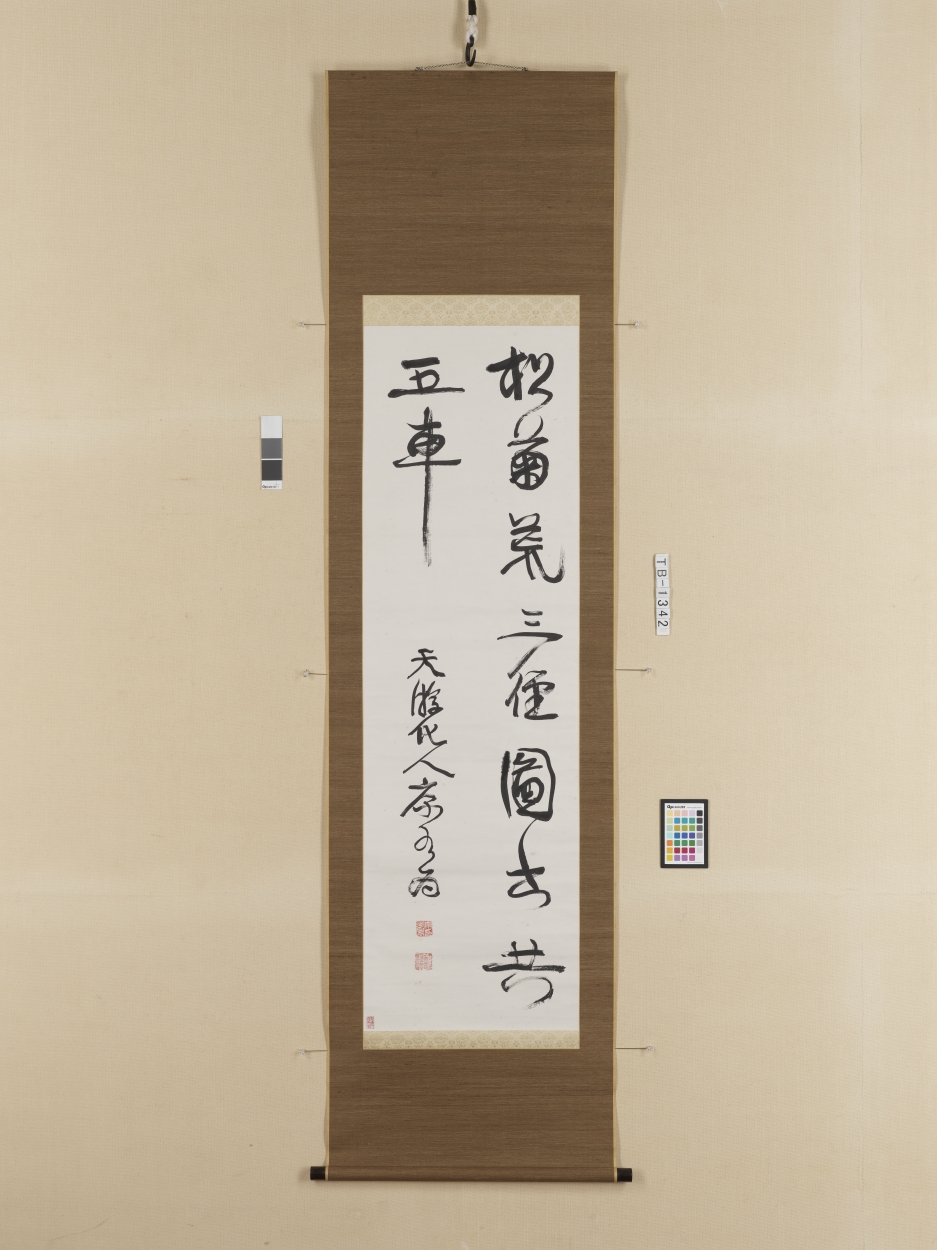 松菊荒三徑圖書共
五車
天游化人康有為
TB-1342